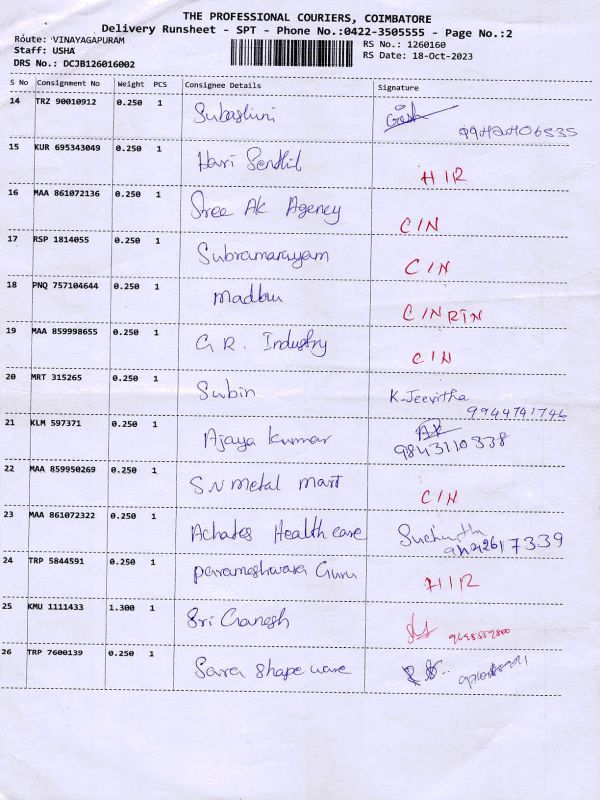 THE PROFESSIONAL COURIERS, COIMBATORE
Delivery Runsheet - SPT - Phone No.:0422-3505555 - Page No.:2
Route: VINAYAGAPURAM RS No.: 1260160
Staff: USHA RS Date: 18-Oct-2023
DRS No.: DCJB126016002
S No Consignment No Weight PCS Consignee Details Signature
14 TRZ 90010912 0.250 1 Subashini
15 KUR 695343049 0.250 1 Hari Senthil HIR
16 MAA 861072136 0.250 1 Sree AK Agency C/N
17 RSP 1814055 0.250 1 C/N
18 PNQ 757104644 0.250 1 Madhu C/N RTN
19 MAA 859998655 0.250 1 G R. Industry C/N
20 MRT 315265 0.250 1 Subin K-Jeevitha
9944741746
21 KLM 597371 0.250 1 Ajaya Kumar
9843110338
22 MAA 859950269 0.250 1 S.N metal mart C/N
23 MAA 861072322 0.250 1 Achates Health care
24 TRP 5844591 0.250 1 Parameshwara Guru HIR
25 KMU 1111433 1.300 1 Sri Ganesh
26 TRP 7600139 0.250 1 Sara shape ware